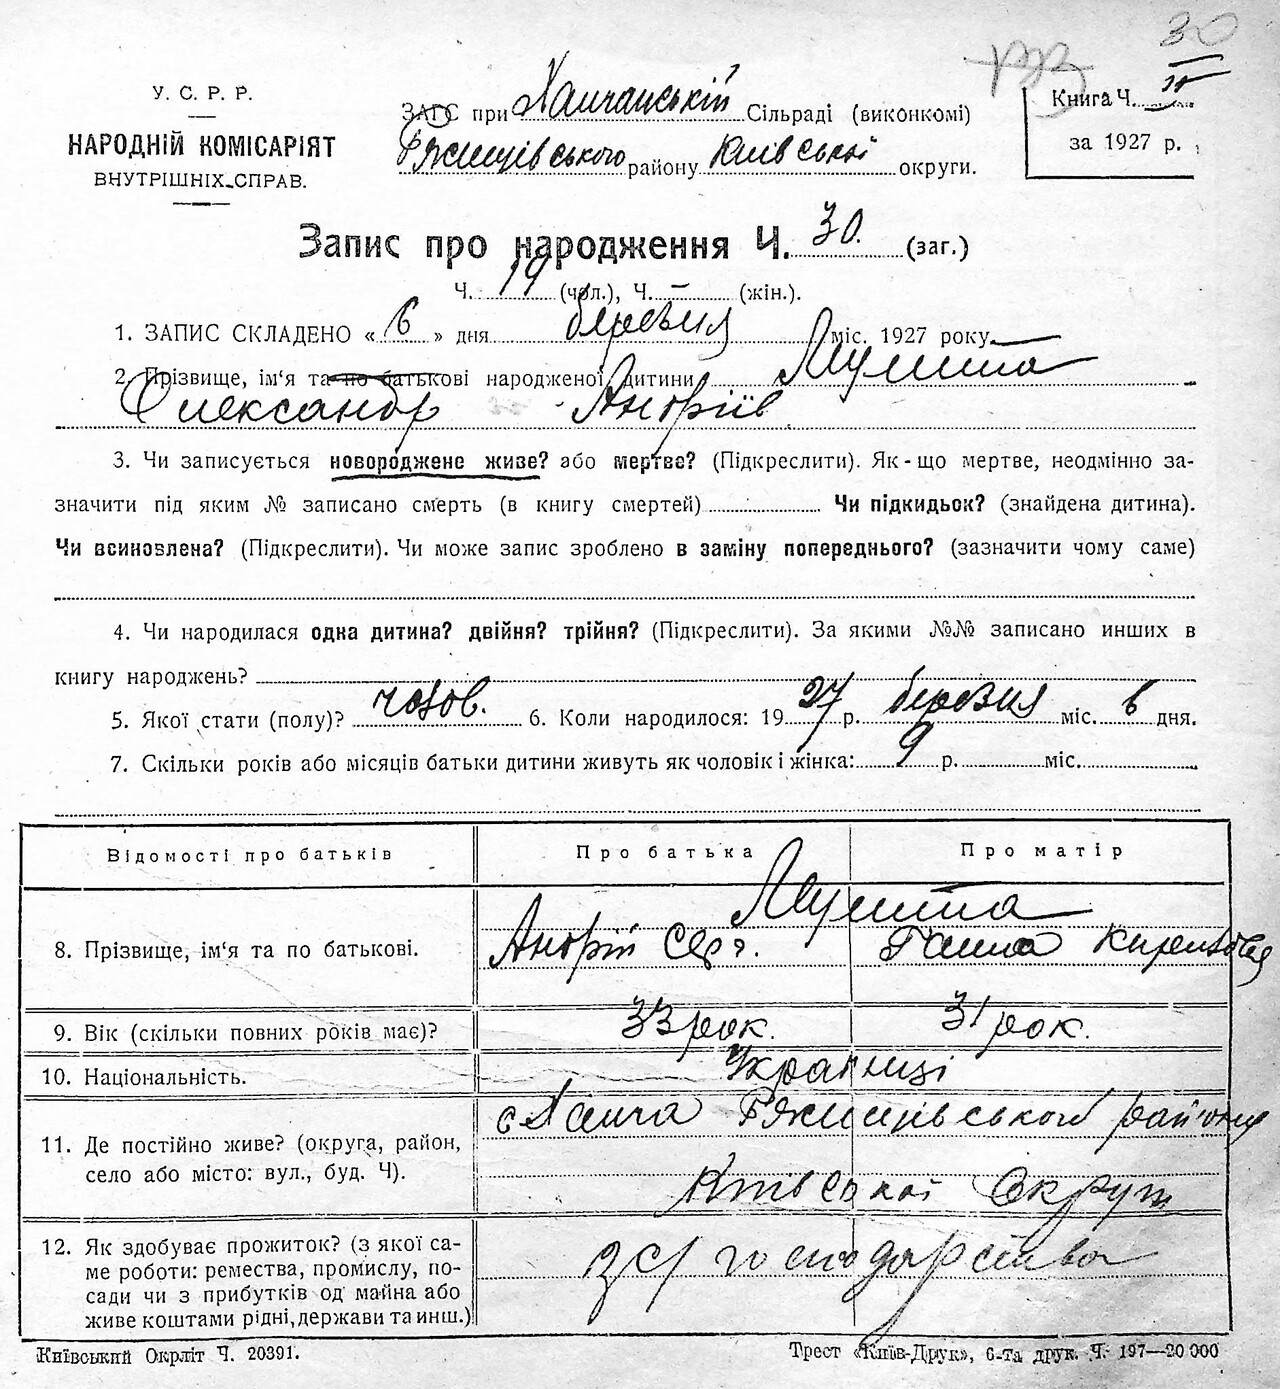 30
У. С. Р. Р.
НАРОДНІЙ КОМІСАРІЯТ
ВНУТРІШНІХ СПРАВ.
ЗАГС при Ханчанській Сільраді (виконкомі)
Ржищівського району Київської округи.
Книга Ч.
за 1927 р.
Запис про народження Ч. 30. (заг.)
Ч. 19 (чол.), Ч. – (жін.).
1. ЗАПИС СКЛАДЕНО « 6 » дня березня міс. 1927 року.
2. Прізвище, ім'я та по батькові народженої дитини
Олександр Андріїв
3. Чи записується новороджене живе? або мертве? (Підкреслити). Як-що мертве, неодмінно за-
значити під яким № записано смерть (в книгу смертей) Чи підкидьок? (знайдена дитина).
Чи всиновлена? (Підкреслити). Чи може запис зроблено в заміну попереднього? (зазначити чому саме)
4. Чи народилася одна дитина? двійня? трійня? (Підкреслити). За якими №№ записано инших в
книгу народжень?
5. Якої стати (полу)? чолов. 6. Коли народилося: 1927 р. березня міс. 6 дня.
7. Скільки років або місяців батьки дитини живуть як чоловік і жінка: 9 р. міс.
Відомості про батьків Про батька Про матір
8. Прізвище, ім'я та по батькові. Андрій Сер. Ганна
9. Вік (скільки повних років має)? 33 рок. 31 рок.
10. Національність. Українці
11. Де постійно живе? (округа, район, село або місто: вул., буд. Ч). с Ханча Ржищівського району
Київської Округи
12. Як здобуває прожиток? (з якої са-
ме роботи: ремества, промислу, по-
сади чи з прибутків од майна або
живе коштами рідні, держави та инш.) з с/господарства
Київський Окрліт Ч. 20391. Трест «Київ-Друк», 6-та друк. Ч. 197—20 000